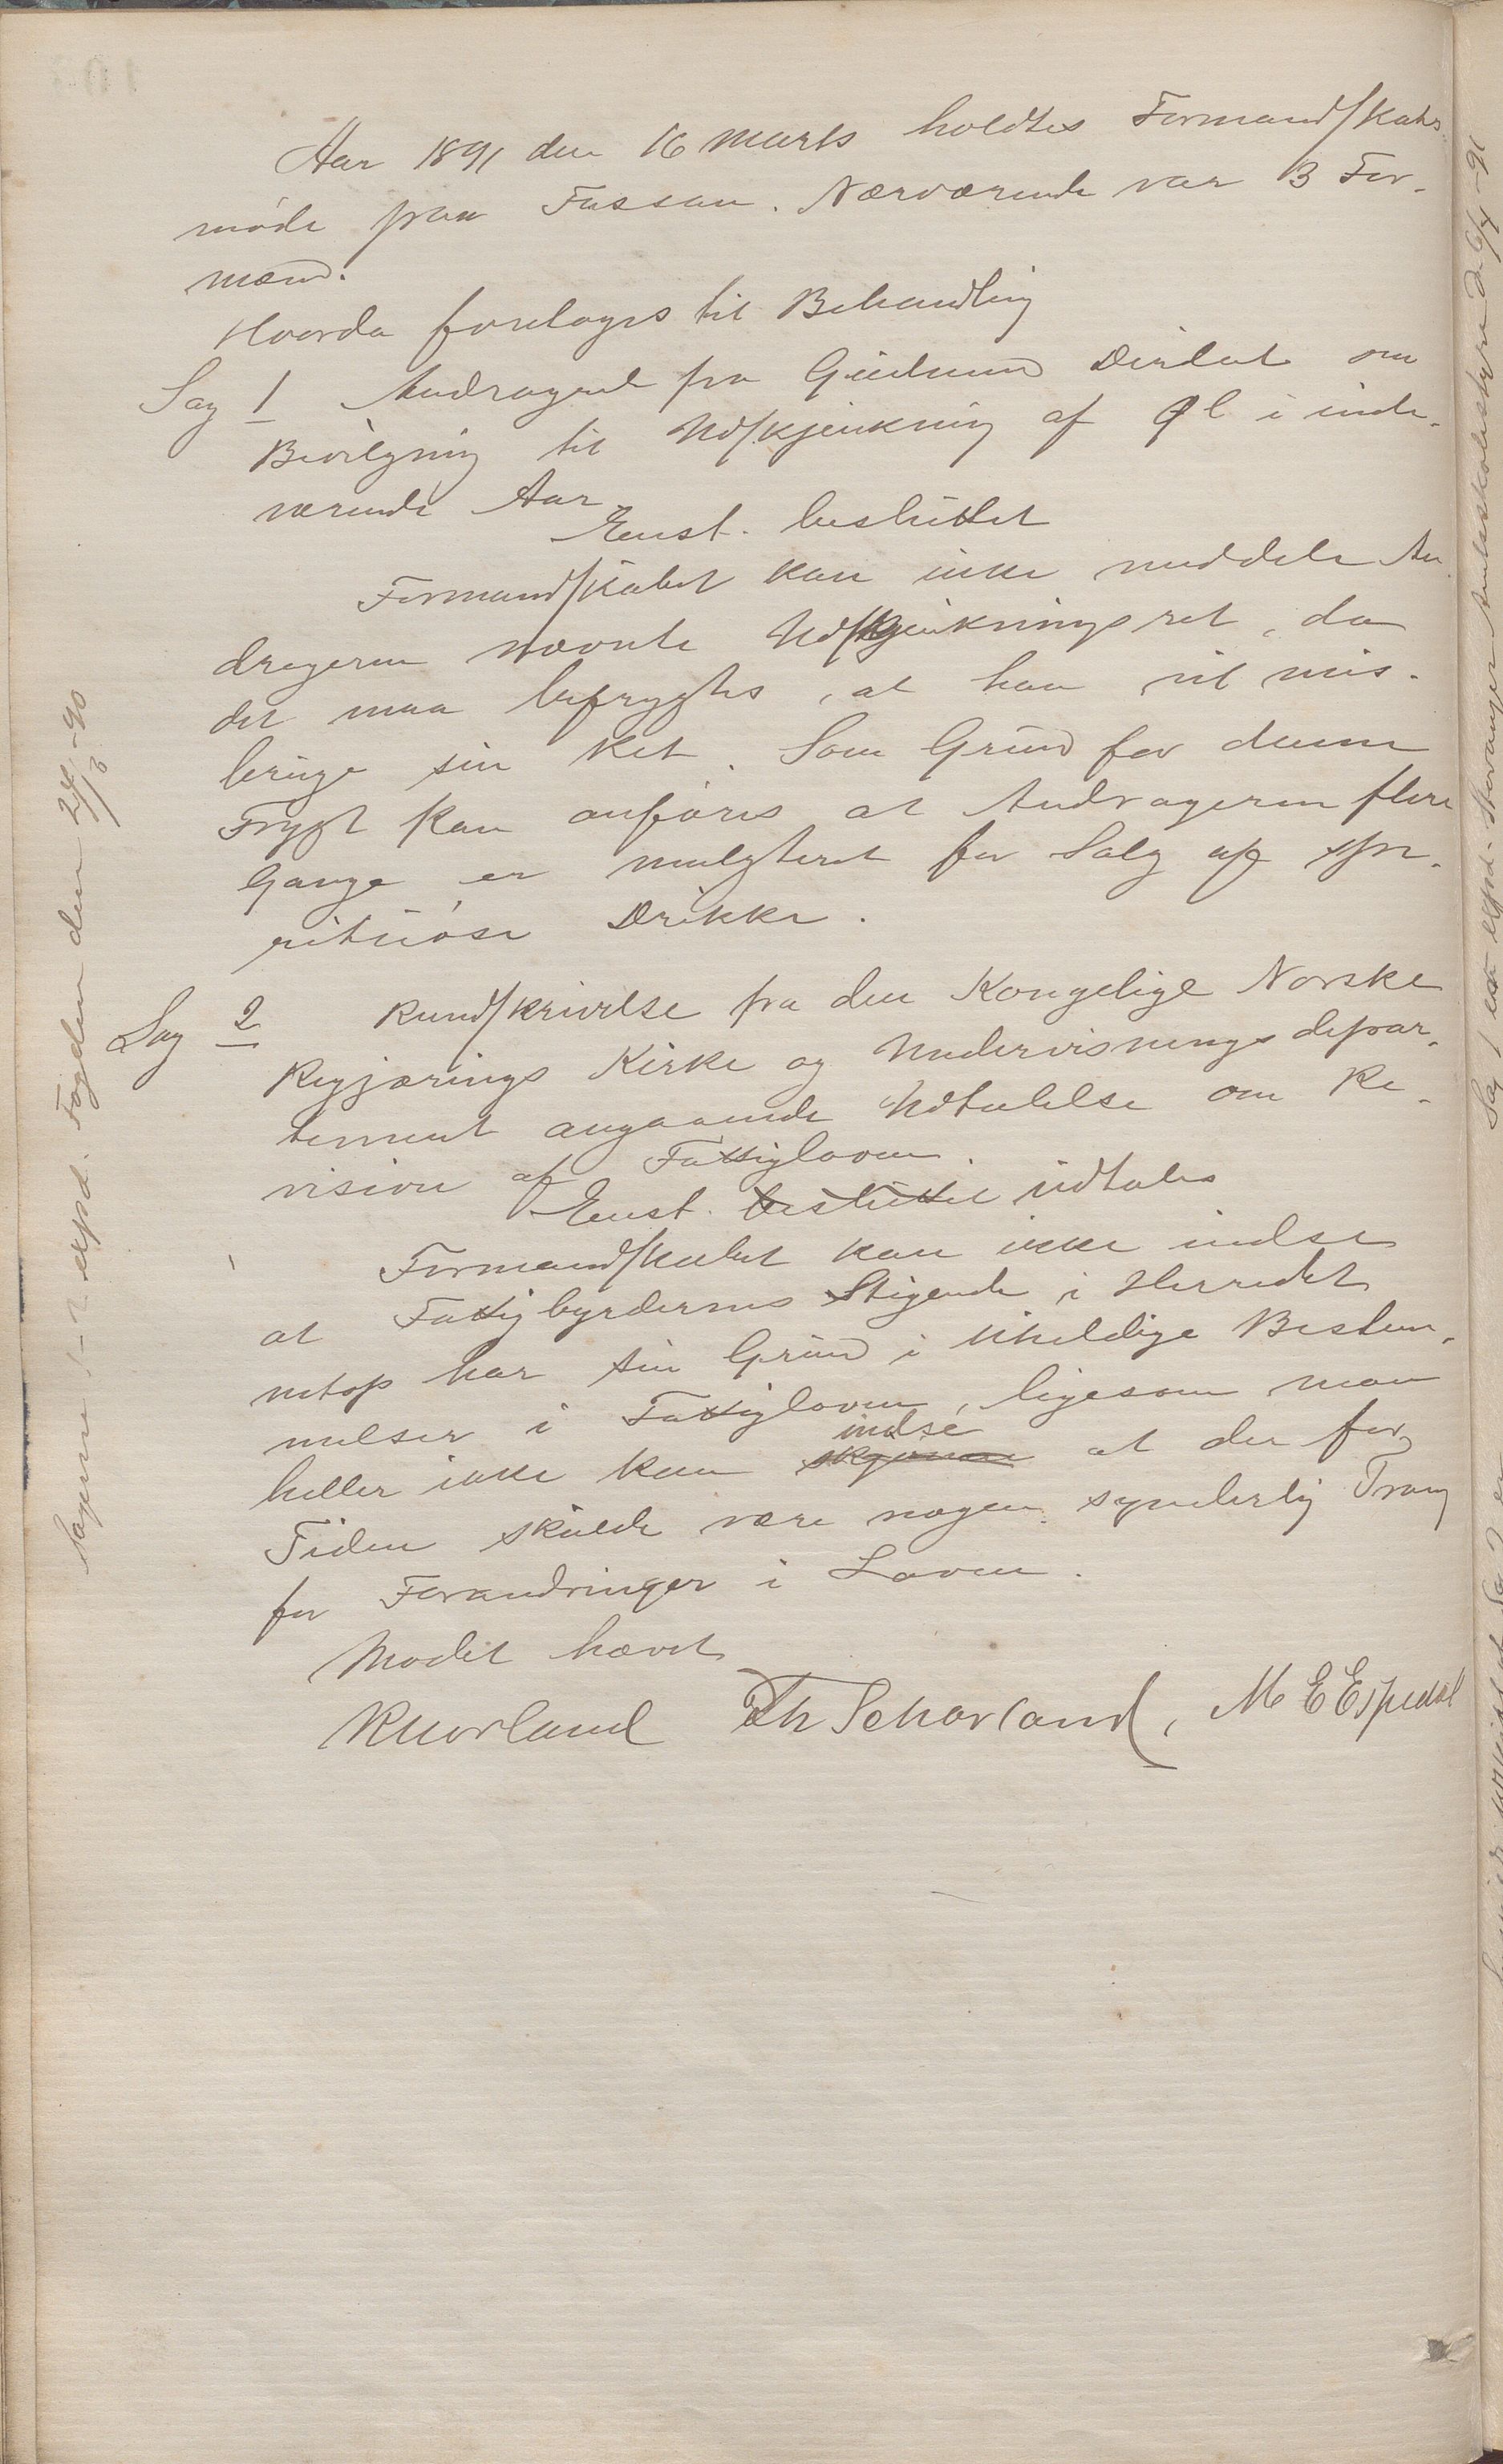 Aar 1891 den 16 Marts holdtes Formandskabs
møde paa Fossan. Nærværende var 3 For-
mænd.
Hvorda foretoges til Behandling
Sag 1 Andragende fra Gudmund Dirdal om
Bevilgning til Udskjenkning af Øl i inde-
værende Aar
Enst. besluttet
Formandskabet kan ikke meddele An-
drageren nævnte Udskjenkningsret, da
det maa befrygtes, at han vil mis-
bruge sin Ret. Som Grund for denne
Frygt kan anføres at Andrageren flere
Gange er mulgteret for Salg af spi-
rituøse Drikke.
Sag 2 Rundskrivelse fra den Kongelige Norske
Regjærings Kirke og Undervisnings depar-
tement angaaende Udtalelse om Re-
vision af Fattigloven.
Enst. besluttet udtales
Formandskabet kan ikke indse
at Fattigbyrdernes Stigende i Herredet
netop har sin Grund i uheldige Bestem-
melser i Fattigloven, ligesom man
indse
heller ikke kan skjønne at der for
Tiden skulde være nogen synderlig Trang
for Forandringer i Loven.
Mødet hævet
Th Schovland, M E Espedal
Sagerne 1-2 expd. Fogden den 24/3-90
Sag 1 expd. Stavanger Amtsskolestyre d 6/4-91